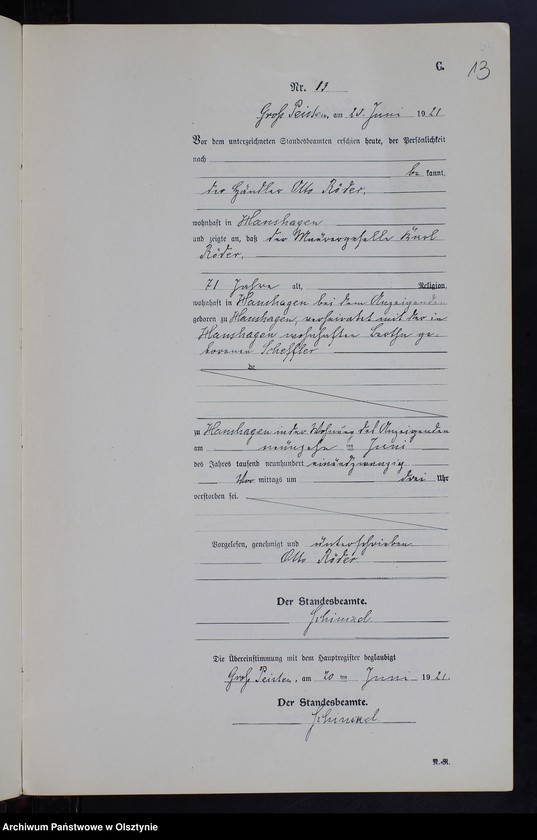 C.
13
Nr. 13
Groß Peisten, am 20. Juni 1921
Vor dem unterzeichneten Standesbeamten erschien heute, der Persönlichkeit
nach
be kannt,
der Händler Otto Röder,
wohnhaft in Hanshagen
und zeigte an, daß der Maurergeselle Karl
Röder,
71 Jahre alt, Religion,
wohnhaft in Hanshagen bei dem Anzeigenden
geboren zu Hanshagen, verheiratet mit der in
Hanshagen wohnhaften Bertha ge-
borenen Scheffler
zu Hanshagen in der Wohnung des Anzeigenden
am neunzehn ten Juni
des Jahres tausend neunhundert einundzwanzig
Vor mittags um drei Uhr
verstorben sei.
Vorgelesen, genehmigt und unterschrieben
Otto Röder
Der Standesbeamte.
Schinkel
Die Übereinstimmung mit dem Hauptregister beglaubigt
Groß Peisten, am 20 ten Juni 1921.
Der Standesbeamte.
Schinkel
N.-R.
Archiwum Państwowe w Olsztynie